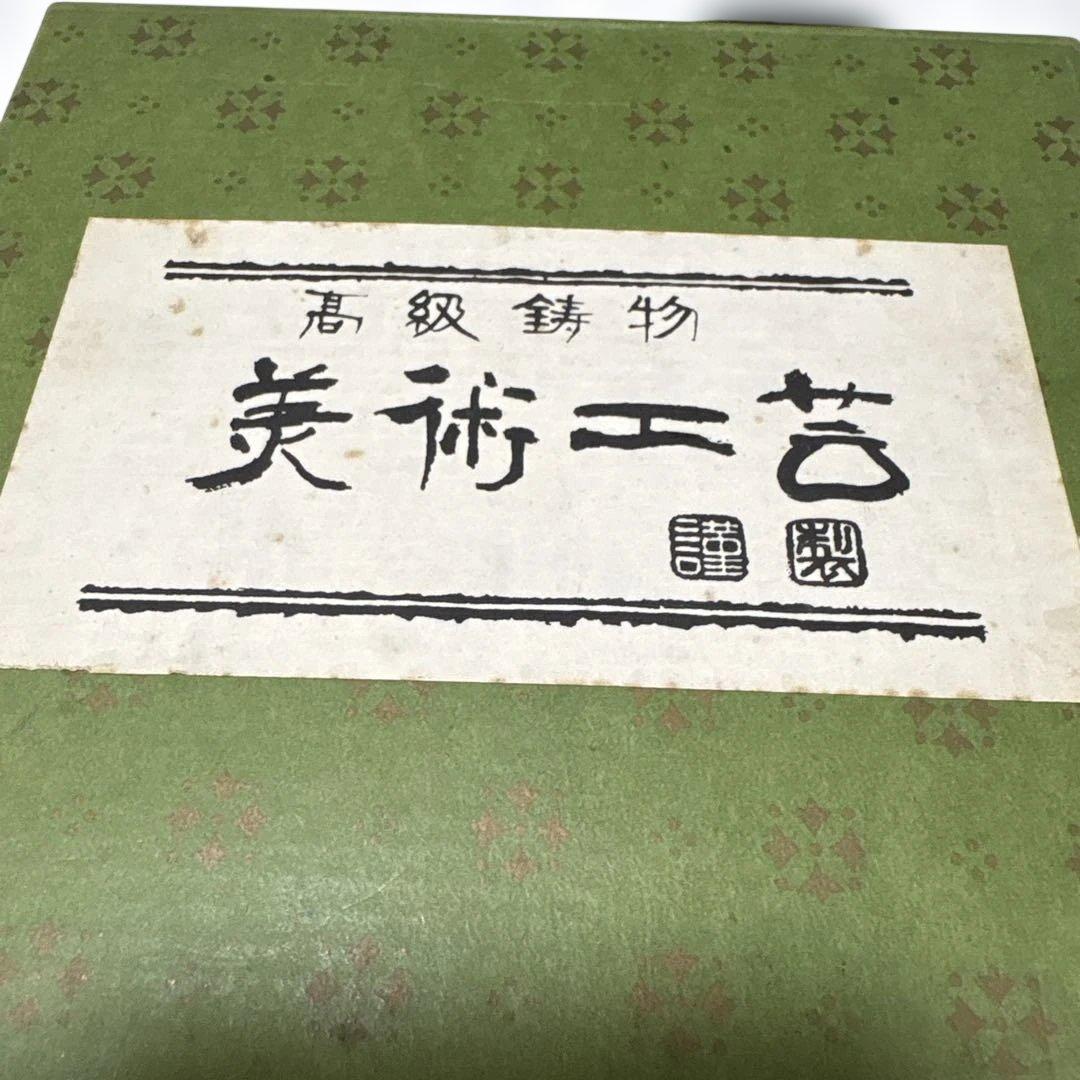 高級鋳物
美術工芸
謹製